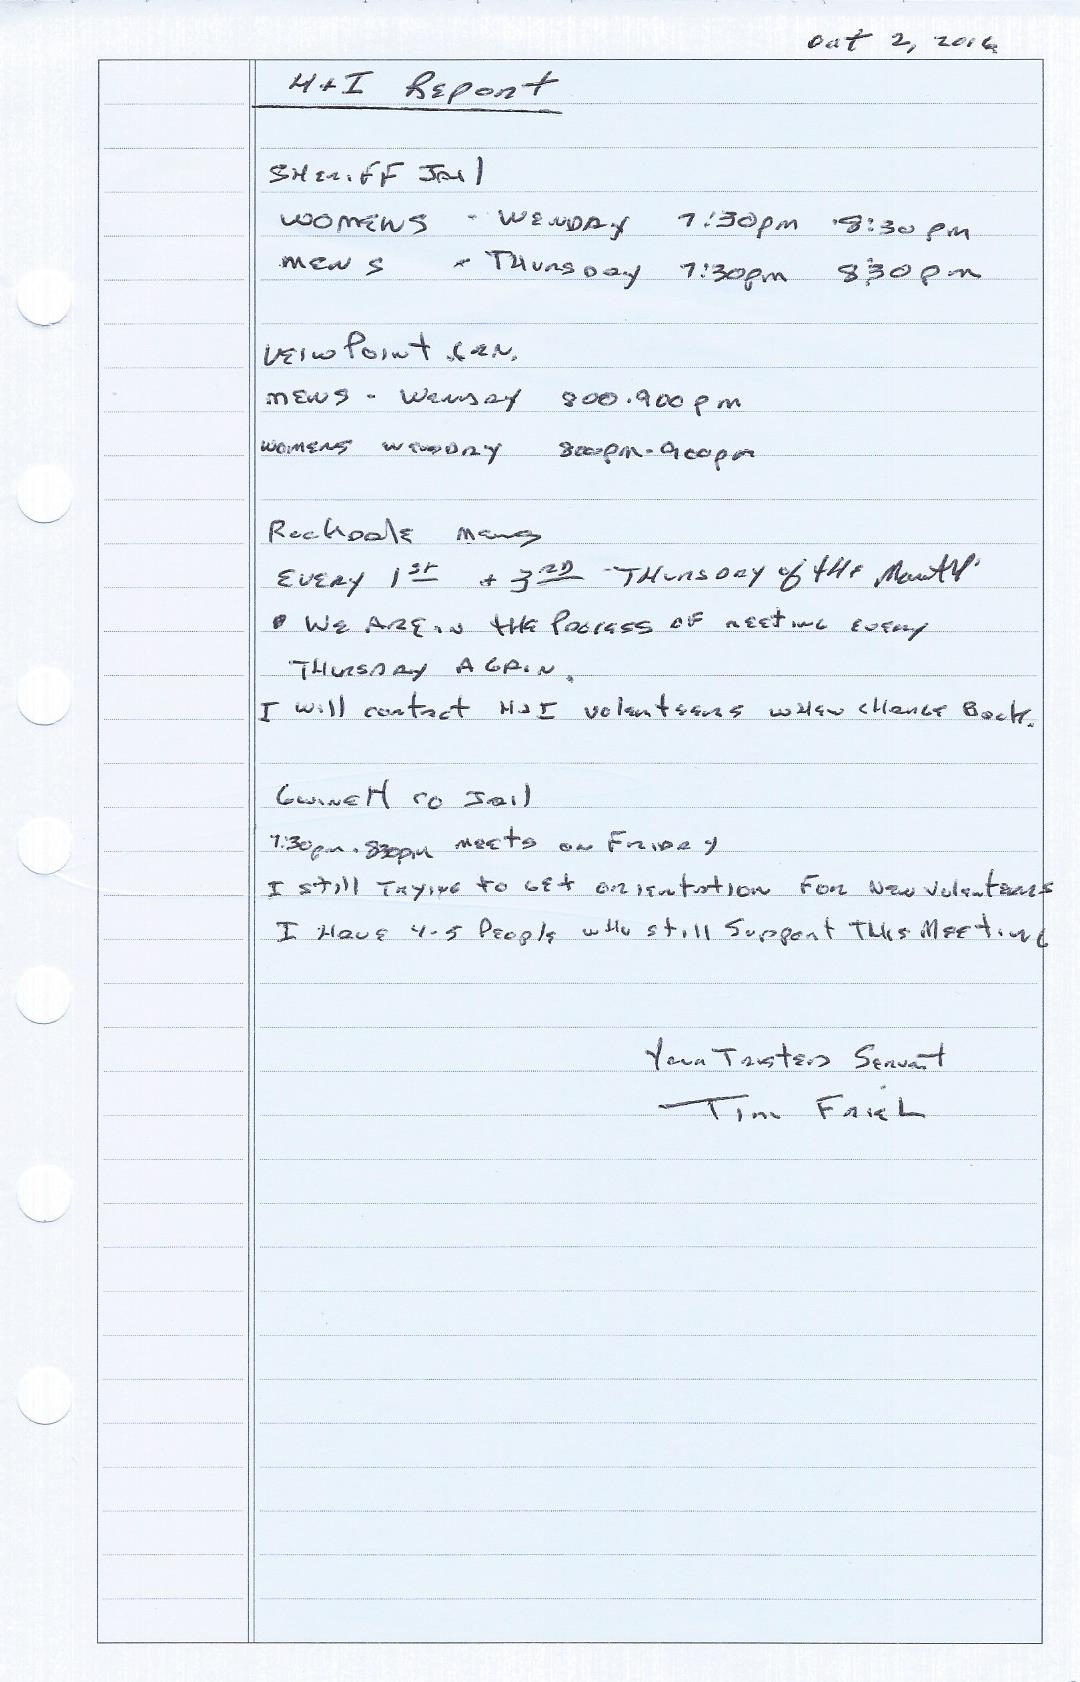 Oct 2, 2016
H+I Report
SHERIFF JAIL
WOMENS - WENDAY 7:30pm - 8:30 pm
MENS - THURSDAY 7:30pm 8:30pm
VEIWPOINT
MENS - WENSAY 800-900pm
WOMENS WENDDAY 800pm-900pm
Rockdale Mens
EVERY 1st + 3RD THURSDAY of tHE MontH
WE ARE iN tHE PROCESS OF MEETING EVERY
THURSDAY AGAIN.
I will contact H+I volenteers wHEN CHANGE Back.
GWINETT CO JAIL
7:30pm-830pm MEETS ON FRIDAY
I still TRYING to GET ORIENTATION FOR NEW Volenteers
I HAVE 4-5 PEOPLE wHo still Support THIS MEETING
Your TRUSTED SERVANT
Tim